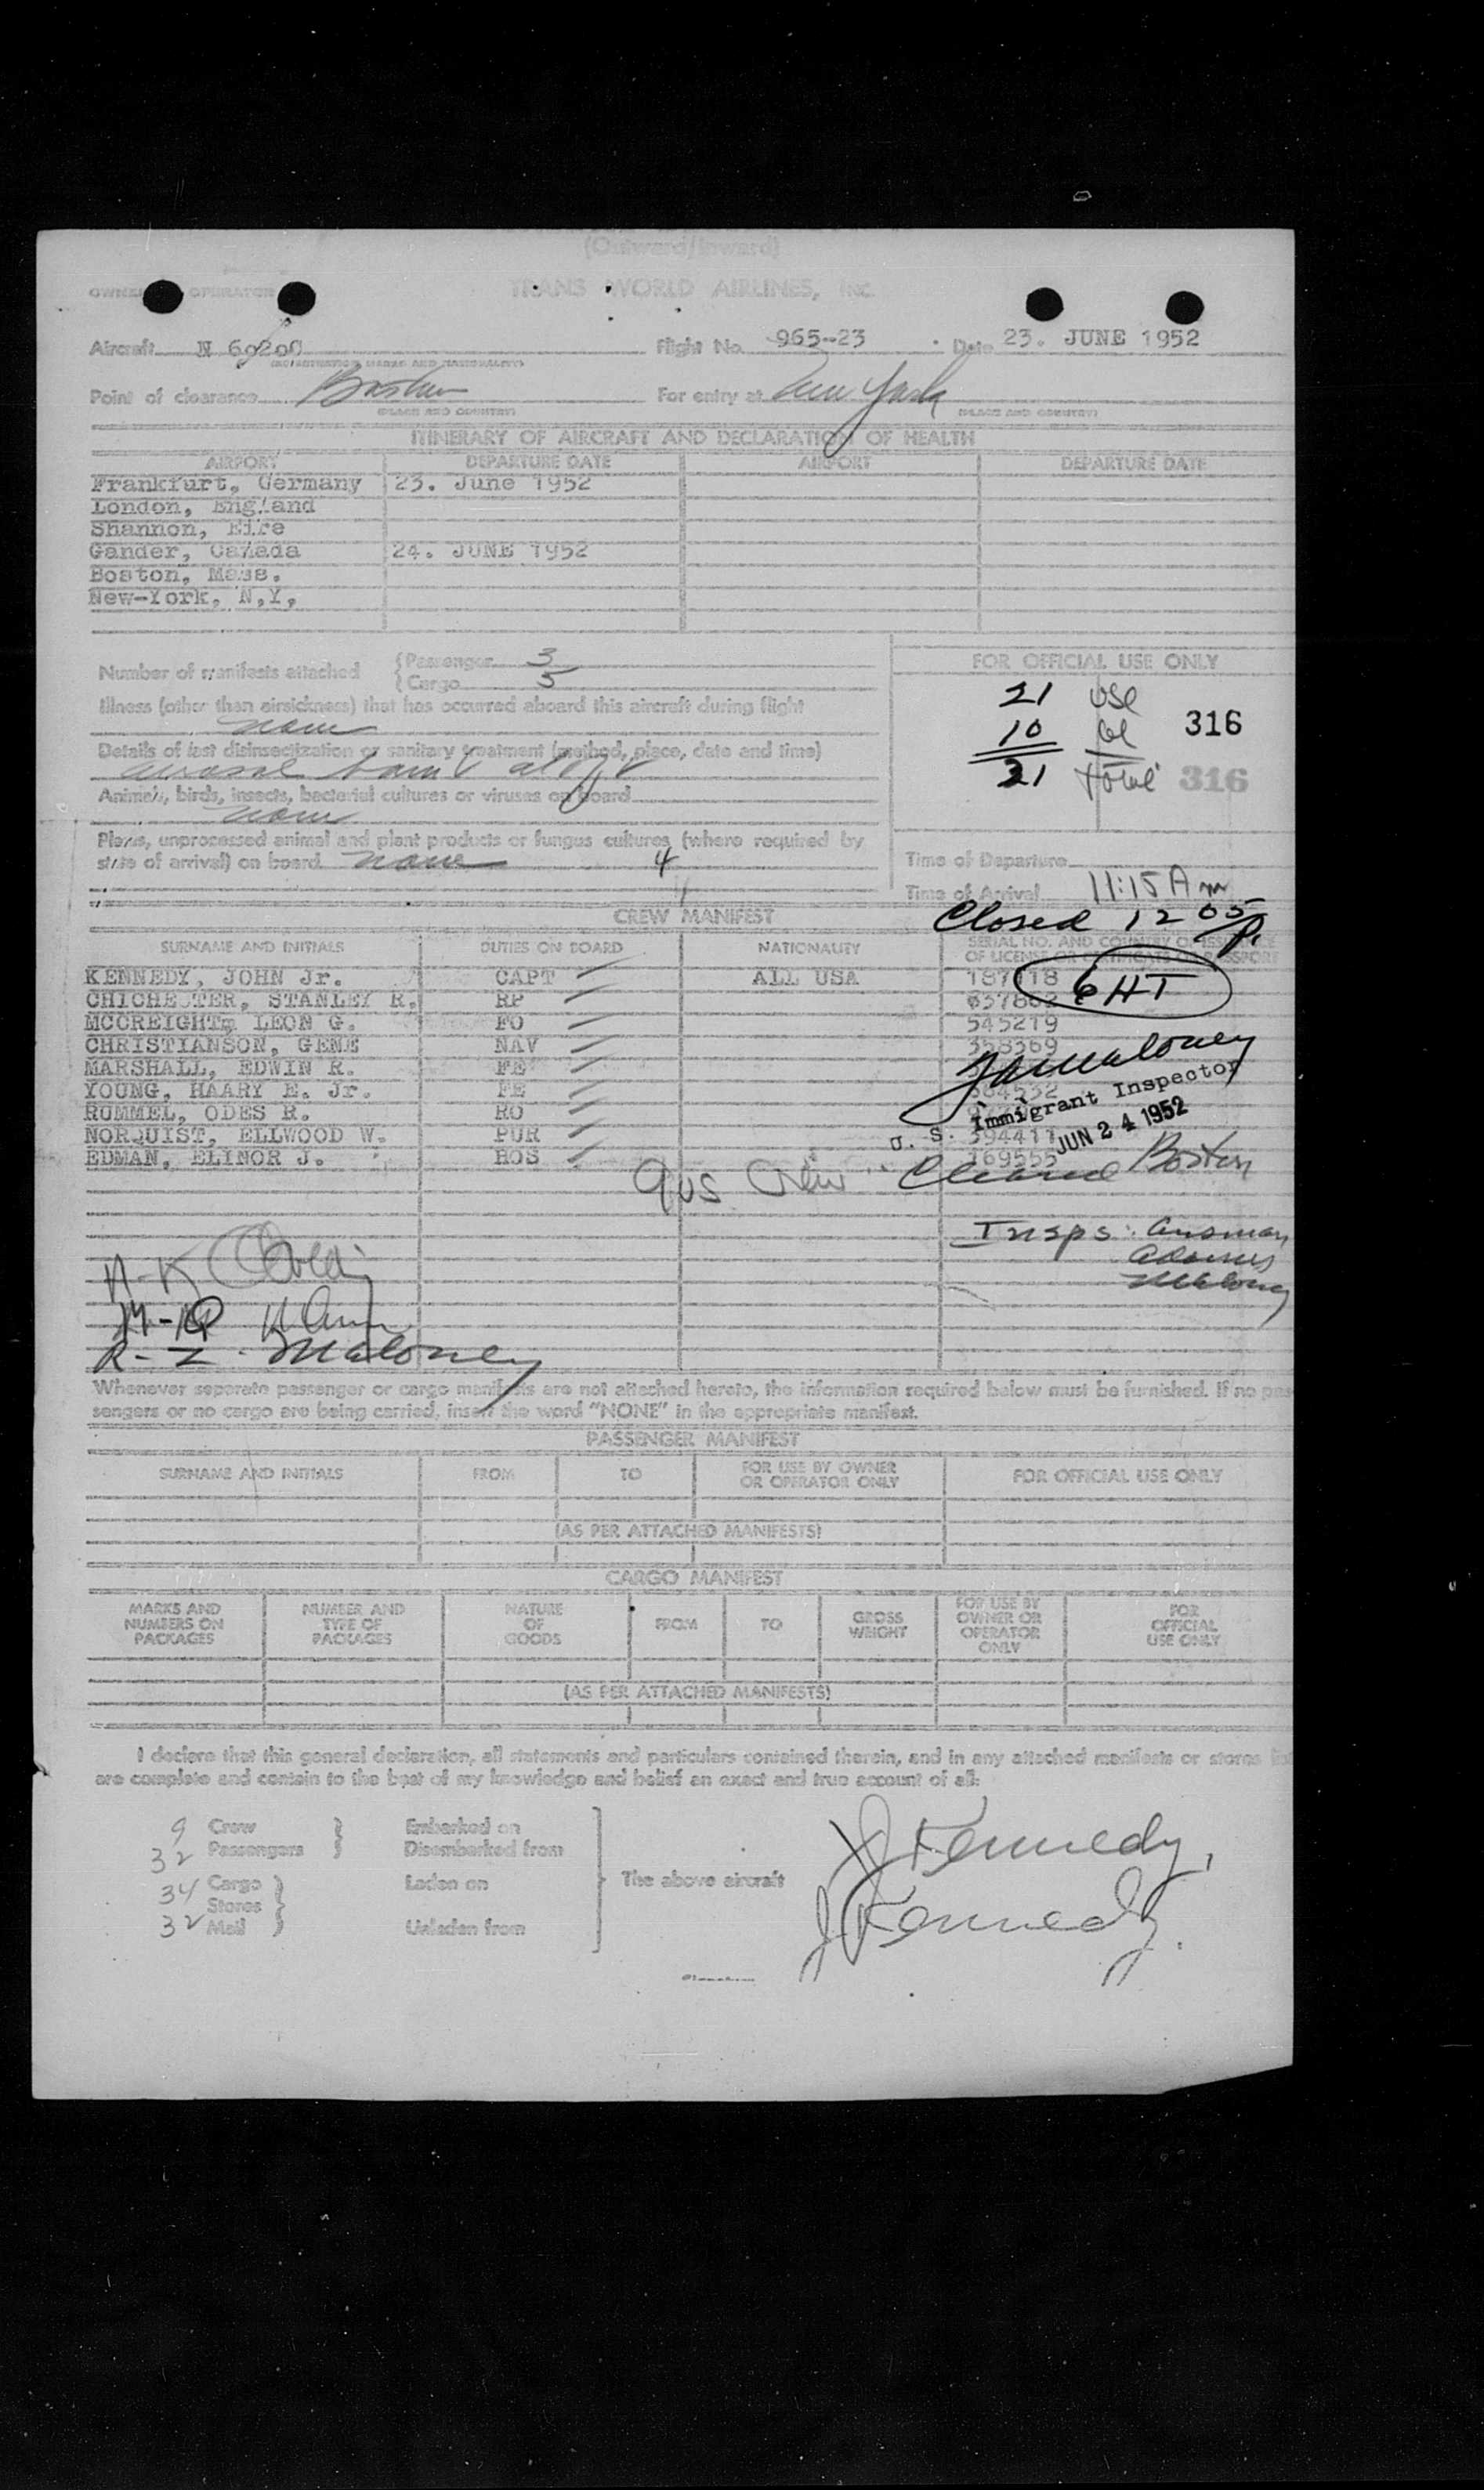 (Outward/Inward)
OPERATOR TRANS WORLD AIRLINES, INC.
Aircraft Flight No. 965-23 Date 23. JUNE 1952
Point of clearance Boston For entry at New York
(PLACE AND COUNTRY) (PLACE AND COUNTRY)
ITINERARY OF AIRCRAFT AND DECLARATION OF HEALTH
AIRPORT DEPARTURE DATE AIRPORT DEPARTURE DATE
Frankfurt, Germany 23. June 1952
London, England
Shannon, Eire
Gander, Canada 24. JUNE 1952
Boston, Mass.
New-York, N,Y,
Number of manifests attached
Passenger 3
Cargo 5
Illness (other than airsickness) that has occurred aboard this aircraft during flight
none
Details of last disinsectization or sanitary treatment (method, place, date and time)
aerosol bomb
Animals, birds, insects, bacterial cultures or viruses on board
none
Plants, unprocessed animal and plant products or fungus cultures (where required by
state of arrival) on board none 4
FOR OFFICIAL USE ONLY
21 USC
10
316
31 total 316
Time of Departure
Time of Arrival 11:15 Am
Closed 12 05 p.
CREW MANIFEST
SURNAME AND INITIALS DUTIES ON BOARD NATIONALITY SERIAL NO. AND COUNTRY OF ISSUANCE
OF LICENSE OR CERTIFICATE OR PASSPORT
KENNEDY, JOHN Jr. CAPT ALL USA 187118
CHICHESTER, STANLEY R. RP
6HT
MCCREIGHT, LEON G. FO 545219
CHRISTIANSON, GENE NAV 358369
MARSHALL, EDWIN R. FE
YOUNG, HAARY E. Jr. FE
RUMMEL, ODES R. RO
NORQUIST, ELLWOOD W. PUR
EDMAN, ELINOR J. HOS 169555
Maloney
U. S. Immigrant Inspector
JUN 24 1952
9 US Crew Cleared Boston
Insps:
Adams
Maloney
R-I Maloney
Whenever separate passenger or cargo manifests are not attached hereto, the information required below must be furnished. If no pas
sengers or no cargo are being carried, insert the word "NONE" in the appropriate manifest.
PASSENGER MANIFEST
SURNAME AND INITIALS FROM TO FOR USE BY OWNER
OR OPERATOR ONLY FOR OFFICIAL USE ONLY
(AS PER ATTACHED MANIFESTS)
CARGO MANIFEST
MARKS AND
NUMBERS ON
PACKAGES
NUMBER AND
TYPE OF
PACKAGES
NATURE
OF
GOODS
FROM
TO
GROSS
WEIGHT
FOR USE BY
OWNER OR
OPERATOR
ONLY
FOR
OFFICIAL
USE ONLY
(AS PER ATTACHED MANIFESTS)
I declare that this general declaration, all statements and particulars contained therein, and in any attached manifests or stores
are complete and contain to the best of my knowledge and belief an exact and true account of all:
9 Crew Embarked on
32 Passengers Disembarked from
The above aircraft
34 Cargo Laden on
Stores
32 Mail Unladen from
J Kennedy,
J Kennedy.